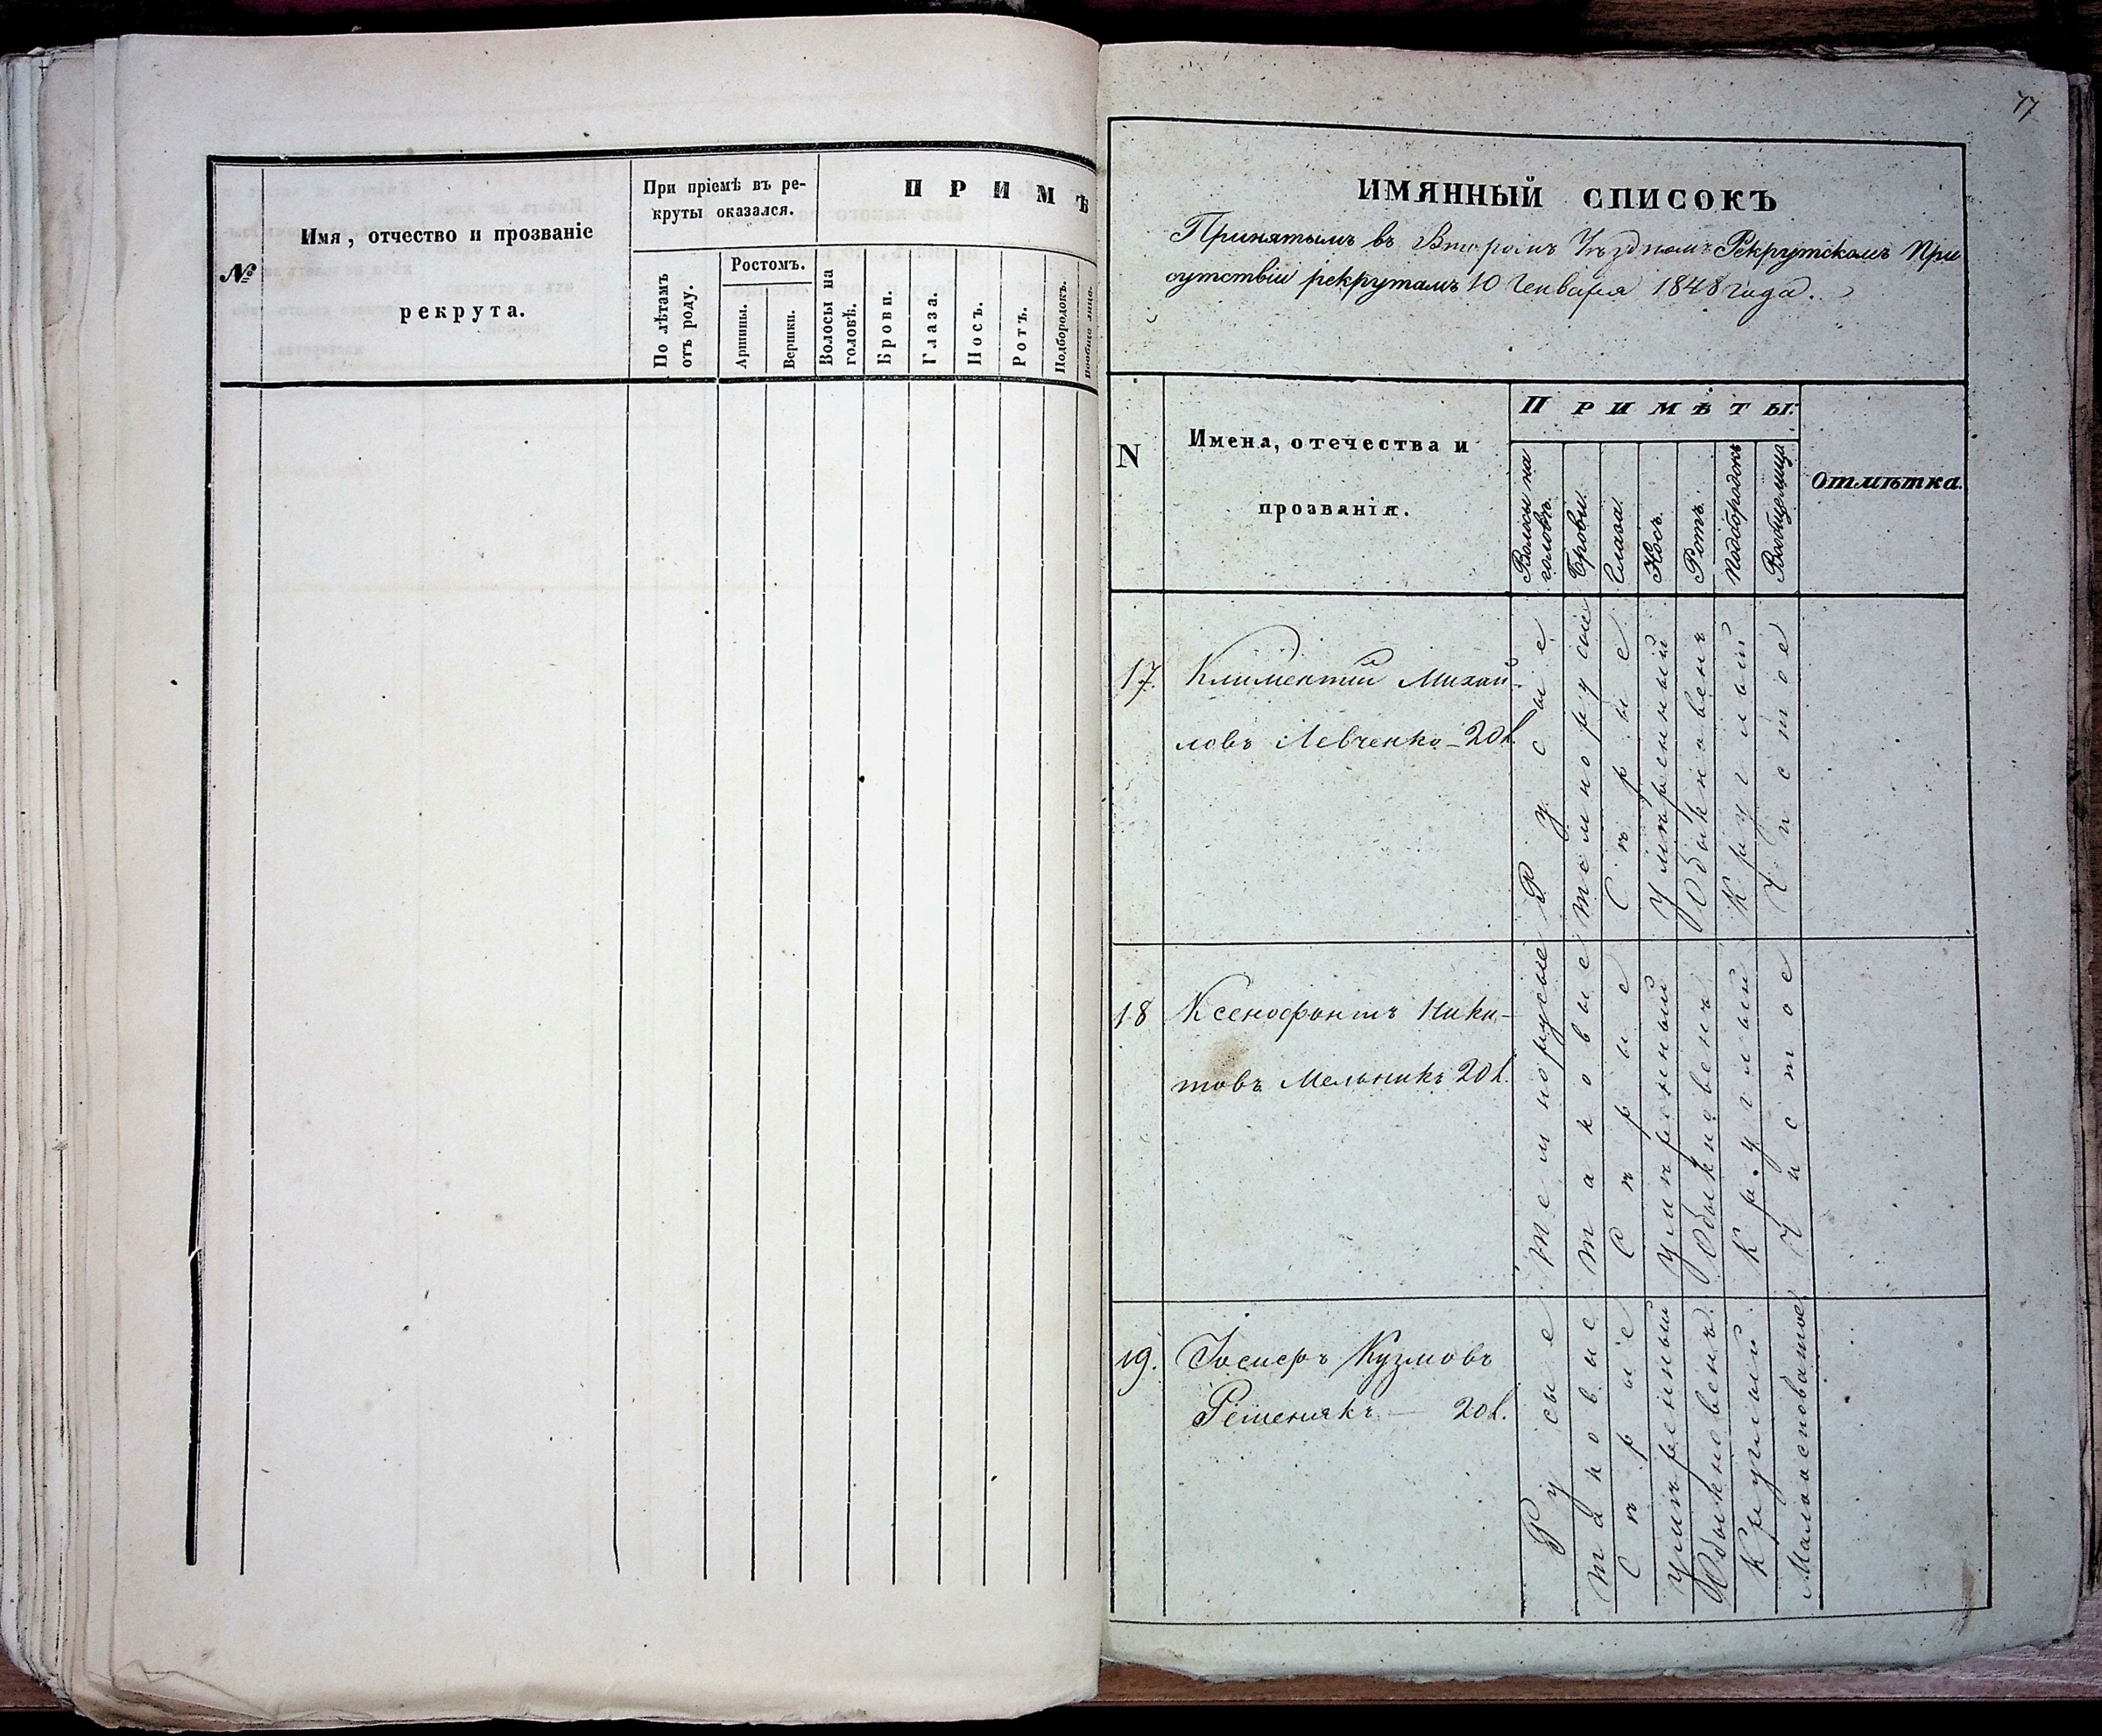 №
Имя, отчество и прозваніе
рекрута.
При пріемѣ въ ре-
круты оказался.
По лѣтамъ
отъ роду.
Ростомъ.
Аршины.
Вершки.
ПРИМѢ
Волосы на
головѣ.
Брови.
Глаза.
Носъ.
Ротъ.
Подбородокъ.
Вообще лице.
77
ИМЯННЫЙ СПИСОКЪ
Принятымъ въ Второмъ Уѣздномъ Рекрутскомъ При
сутствіи рекрутамъ 10 Генваря 1848 года.
N
Имена, отечества и
прозванія.
ПРИМѢТЫ.
Волосы на
головѣ.
Брови.
Глаза.
Носъ.
Ротъ.
Подбородокъ
Вообще лица
Отмѣтка.
17.
Климентий Михай-
ловъ Левченко - 20 л.
Русые
темнорусыи
Сѣрые
Умѣренный
Обыкновенъ
Круглый
Чистое
18
Ксенофонтъ Ники-
товъ Мельникъ 20 л.
Темнорусые
таковые
Сѣрые
Умѣренный
Обыкновенъ
Круглый
Чистое
19.
Іосифъ Кузмовъ
Решенякъ — 20 л.
Русые
таковые
Сѣрые
умѣренный
Обыкновенъ
Круглый
Малоосповатое